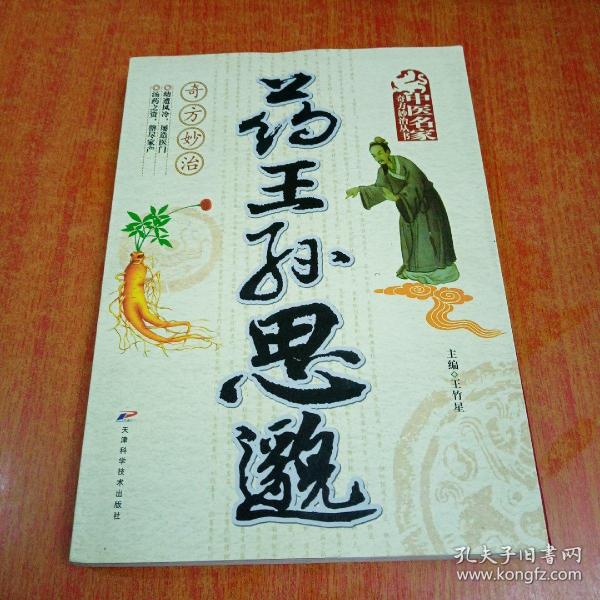 中医名家
奇方妙治丛书
药王孙思邈
奇方妙治
幼遭风冷，屡造医门
汤药之资，罄尽家产
主编◇王竹星
天津科学技术出版社
孔夫子旧书网
www.kongfz.com